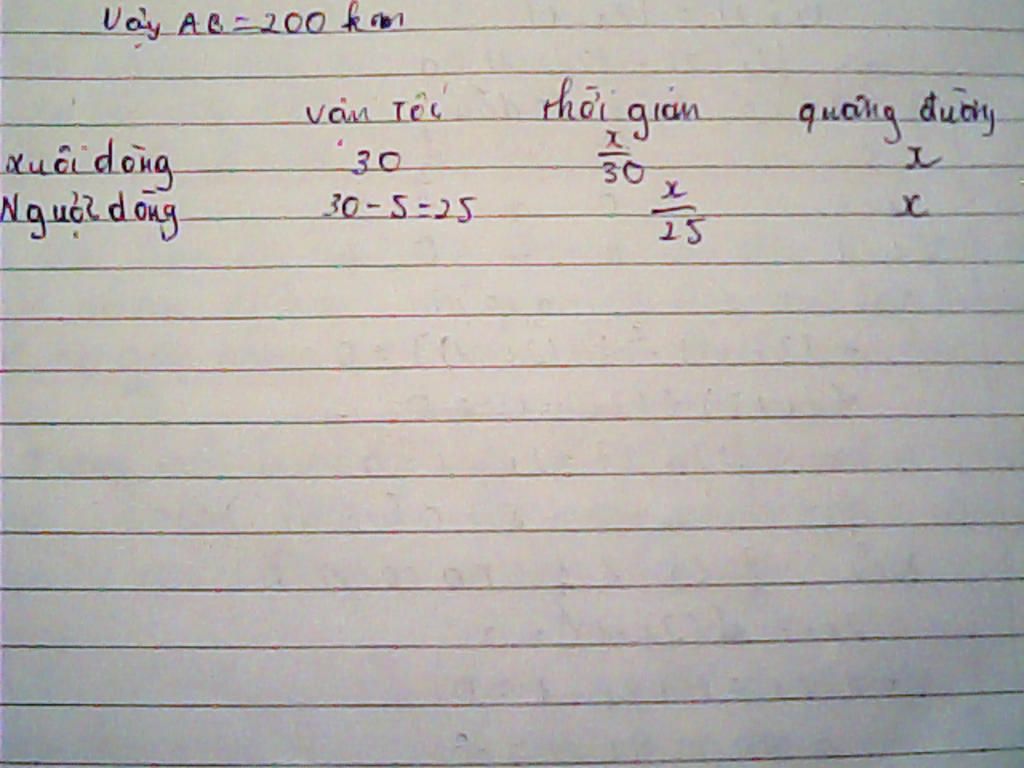 Vậy AB = 200 km
vận tốc thời gian quãng đường
xuôi dòng 30 x/30 x
Ngược dòng 30 - 5 = 25 x/25 x